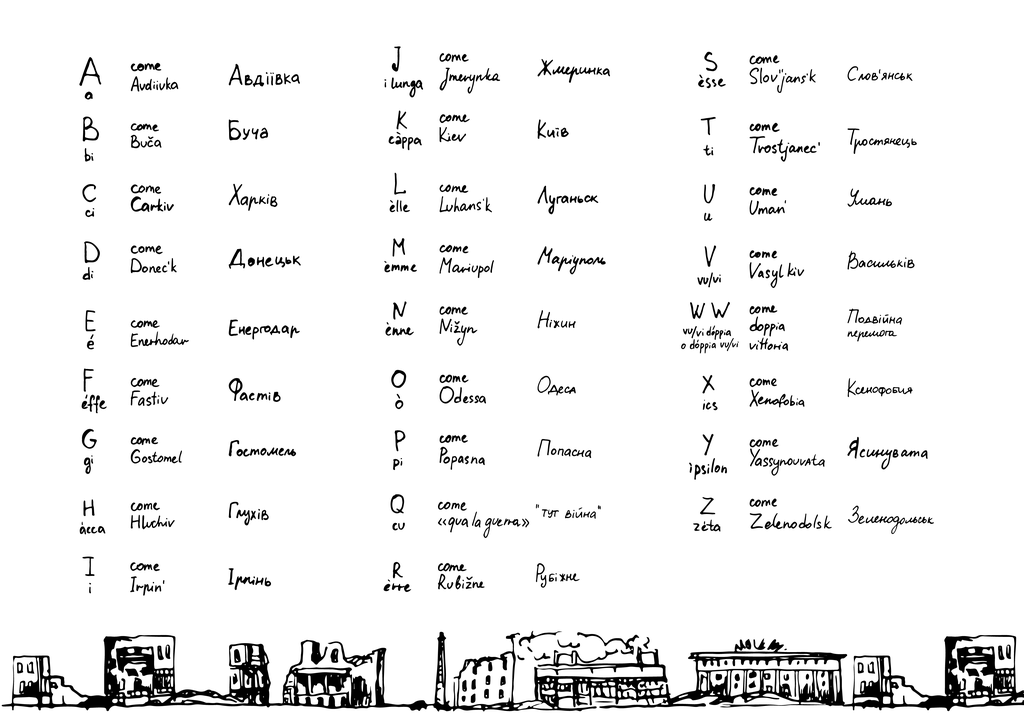 A
a
come
Avdiivka
Авдіївка
B
bi
come
Buča
Буча
C
ci
come
Carkiv
Харків
D
di
come
Donec'k
Донецьк
E
é
come
Enerhodar
Енергодар
F
éffe
come
Fastiv
Фастів
G
gi
come
Gostomel
Гостомель
H
àcca
come
Hluchiv
Глухів
I
i
come
Irpin'
Ірпінь
J
i lunga
come
Jmerynka
Жмеринка
K
càppa
come
Kiev
Київ
L
èlle
come
Luhans'k
Луганьск
M
èmme
come
Mariupol
Маріуполь
N
ènne
come
Nižyn
Ніжин
O
ò
come
Odessa
Одеса
P
pi
come
Popasna
Попасна
Q
cu
come
«qua la guerra»
"тут війна"
R
èrre
come
Rubižne
Рубіжне
S
èsse
come
Slov"jans'k
Слов'янськ
T
ti
come
Trostjanec'
Тростянець
U
u
come
Uman'
Умань
V
vu/vi
come
Vasyl kiv
Васильків
W W
vu/vi dóppia
o dóppia vu/vi
come
doppia
vittoria
Подвійна
перемога
X
ics
come
Xenofobia
Ксенофобия
Y
ìpsilon
come
Yassynouvata
Ясинувата
Z
zèta
come
Zelenodolsk
Зеленодольськ